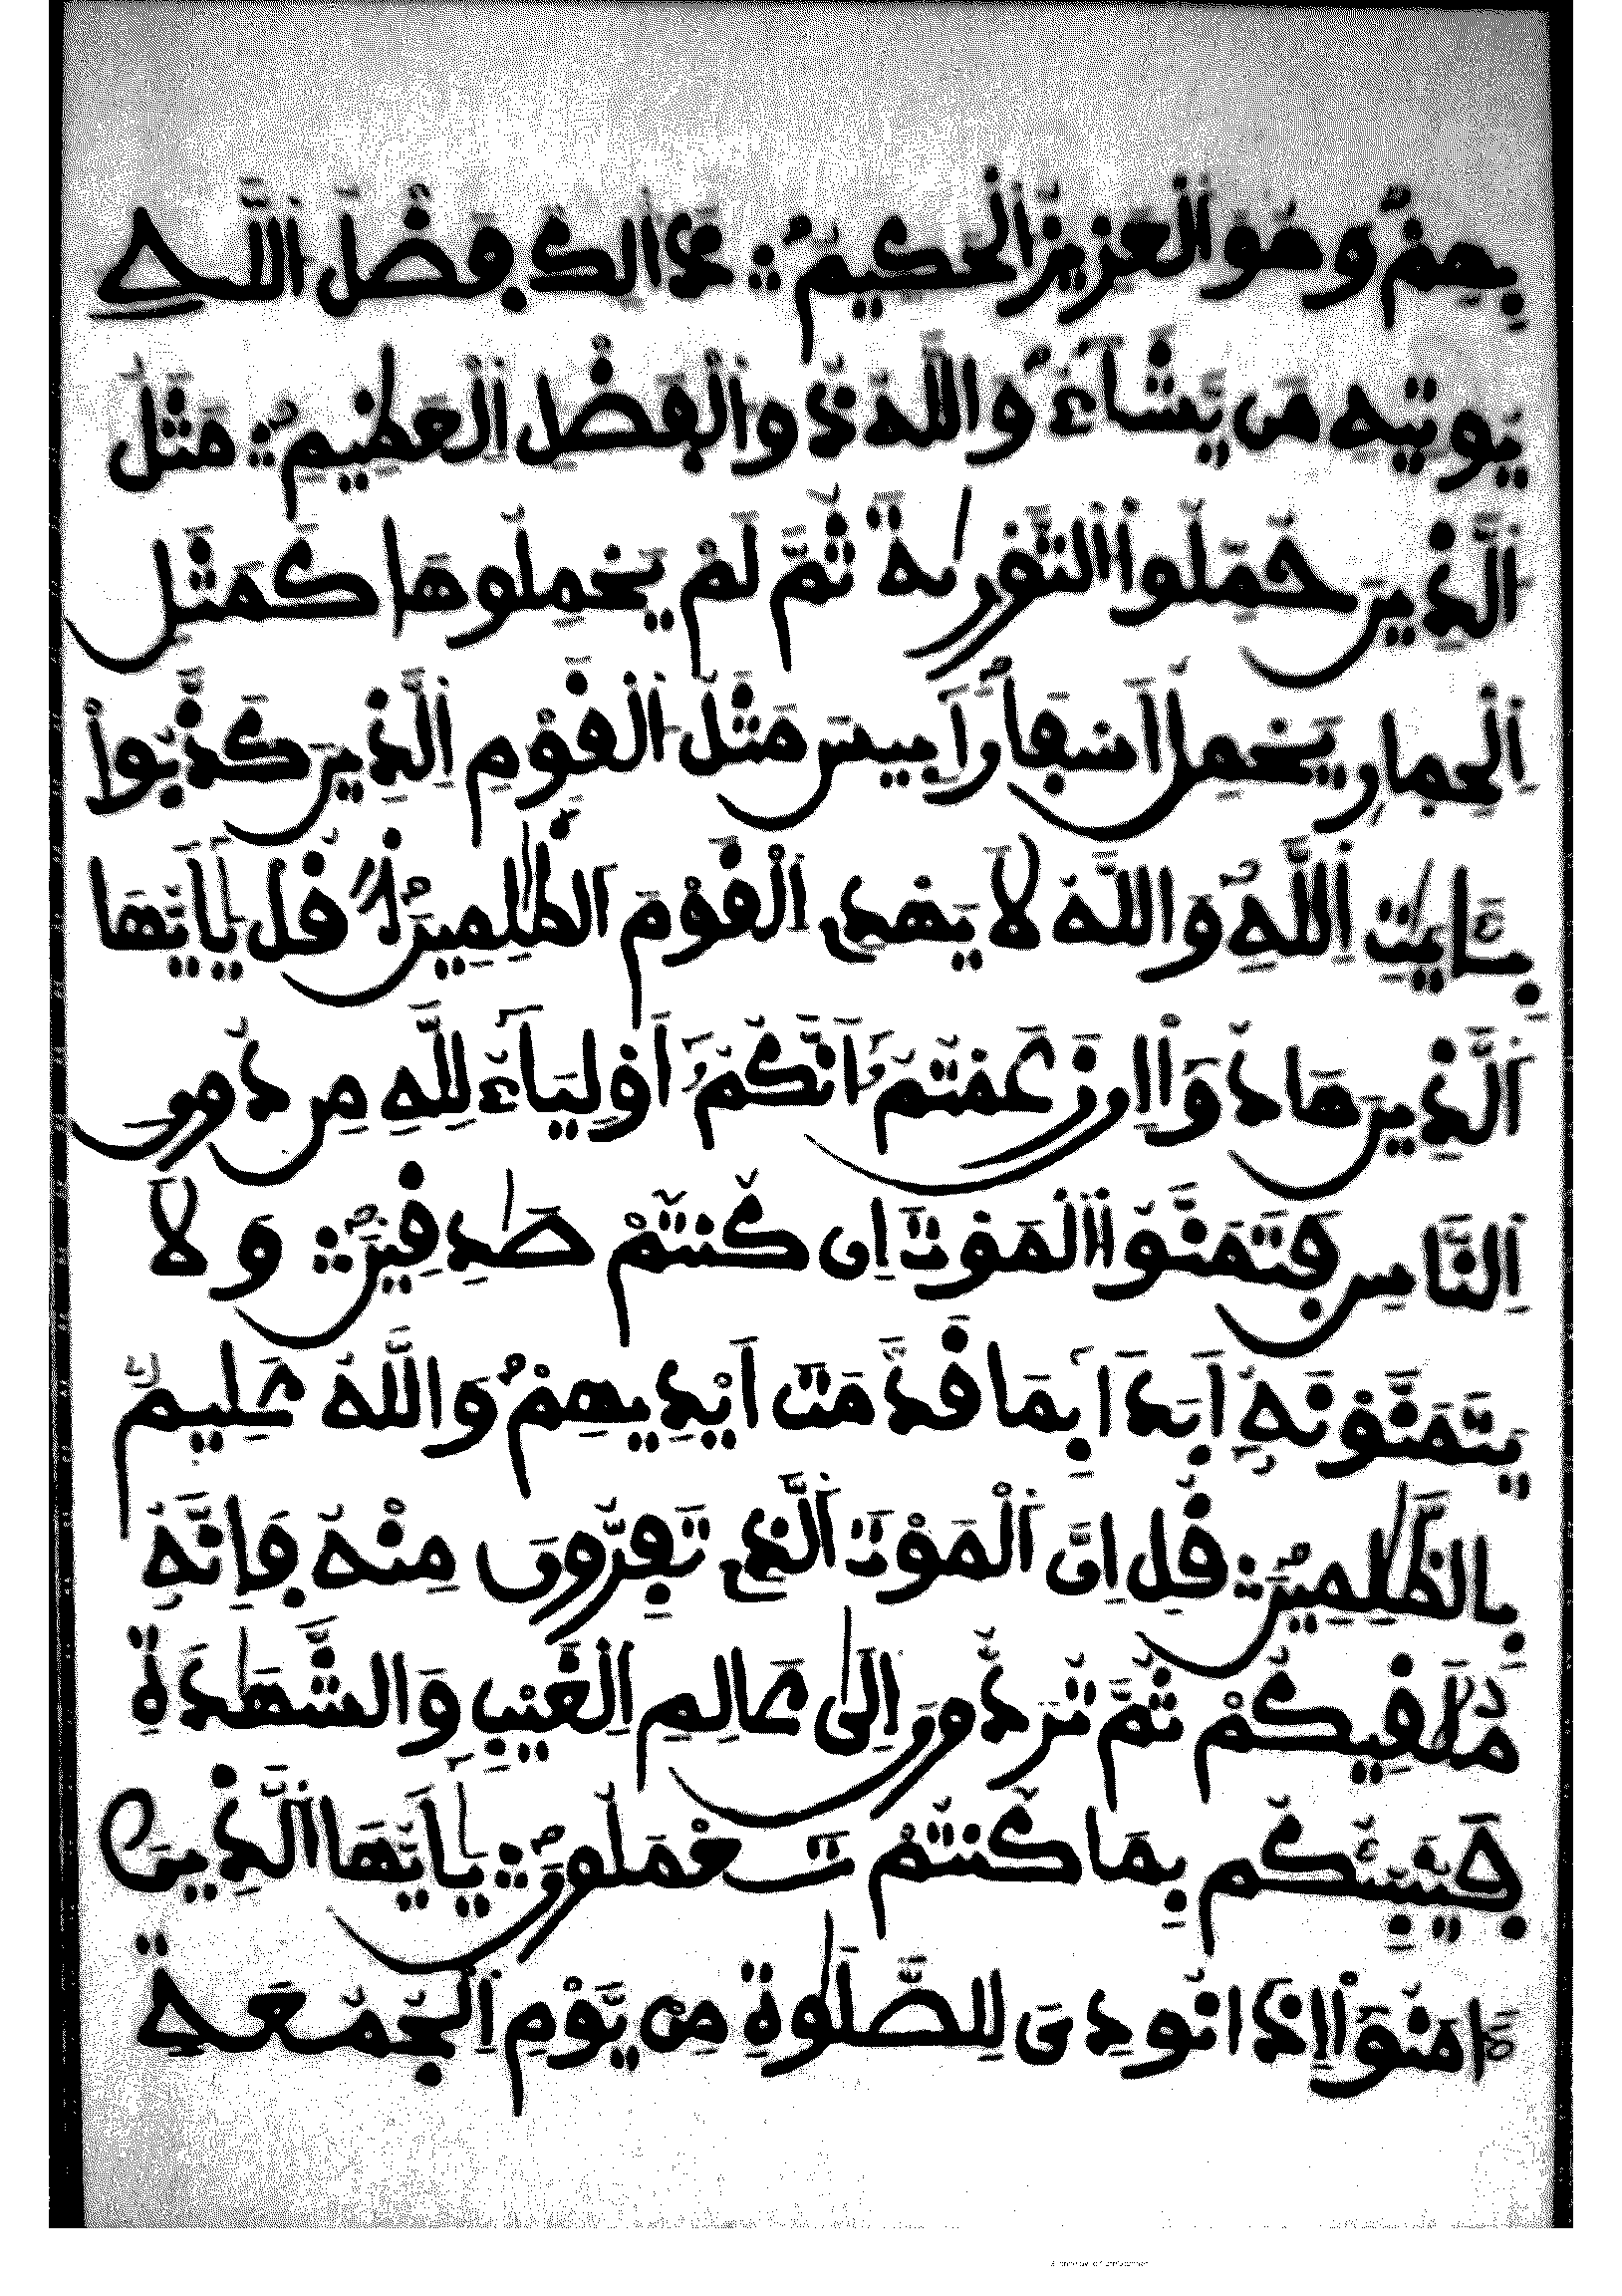 بِهِمُۥ وَهُوَ ٱلْعَزِيزُ ٱلْحَكِيمُ ۝ ذَٰلِكَ فَضْلُ ٱللَّهِ
يُوتِيهِ مَن يَّشَآءُ وَٱللَّهُ ذُو ٱلْفَضْلِ ٱلْعَظِيمِ ۝ مَثَلُ
ٱلَّذِينَ حُمِّلُوا۟ ٱلتَّوْر۪ىٰةَ ثُمَّ لَمْ يَحْمِلُوهَا كَمَثَلِ
ٱلْحِمَارِ يَحْمِلُ أَسْفَارًا بِيسَ مَثَلُ ٱلْقَوْمِ ٱلَّذِينَ كَذَّبُوا۟
بِـَٔايَٰتِ ٱللَّهِ وَٱللَّهُ لَا يَهْدِى ٱلْقَوْمَ ٱلظَّٰلِمِينَ ۝ قُلْ يَٰٓأَيُّهَا
ٱلَّذِينَ هَادُوٓا۟ إِن زَعَمْتُمُۥٓ أَنَّكُمُۥٓ أَوْلِيَآءُ لِلَّهِ مِن دُونِ
ٱلنَّاسِ فَتَمَنَّوُا۟ ٱلْمَوْتَ إِن كُنتُمْ صَٰدِقِينَ ۝ وَلَا
يَتَمَنَّوْنَهُۥٓ أَبَدَۢا بِمَا قَدَّمَتَ اَيْدِيهِمُۥ وَٱللَّهُ عَلِيمٌۢ
بِالظَّٰلِمِينَ ۝ قُلِ انَّ ٱلْمَوْتَ ٱلَّذِى تَفِرُّونَ مِنْهُ فَإِنَّهُۥ
مُلَٰقِيكُمْ ثُمَّ تُرَدُّونَ إِلَىٰ عَالِمِ ٱلْغَيْبِ وَالشَّهَٰدَةِ
فَيُنَبِّئُكُم بِمَا كُنتُمْ تَعْمَلُونَ ۝ يَٰٓأَيُّهَا ٱلَّذِينَ
ءَامَنُوٓا۟ إِذَا نُودِىَ لِلصَّلَوٰةِ مِن يَّوْمِ ٱلْجُمُعَةِ